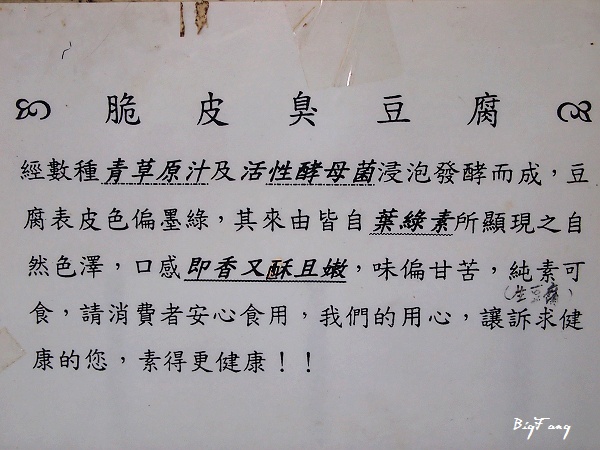 脆皮臭豆腐
經數種青草原汁及活性酵母菌浸泡發酵而成，豆
腐表皮色偏墨綠，其來由皆自葉綠素所顯現之自
然色澤，口感即香又酥且嫩，味偏甘苦，純素可
(生豆腐)
食，請消費者安心食用，我們的用心，讓訴求健
康的您，素得更健康！！
BigFang